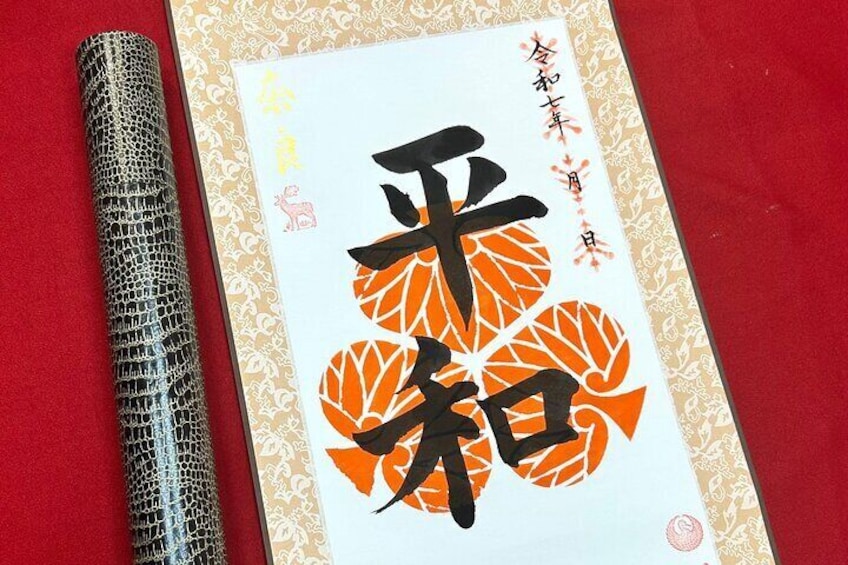 令和七年 月 日
平和
奈良